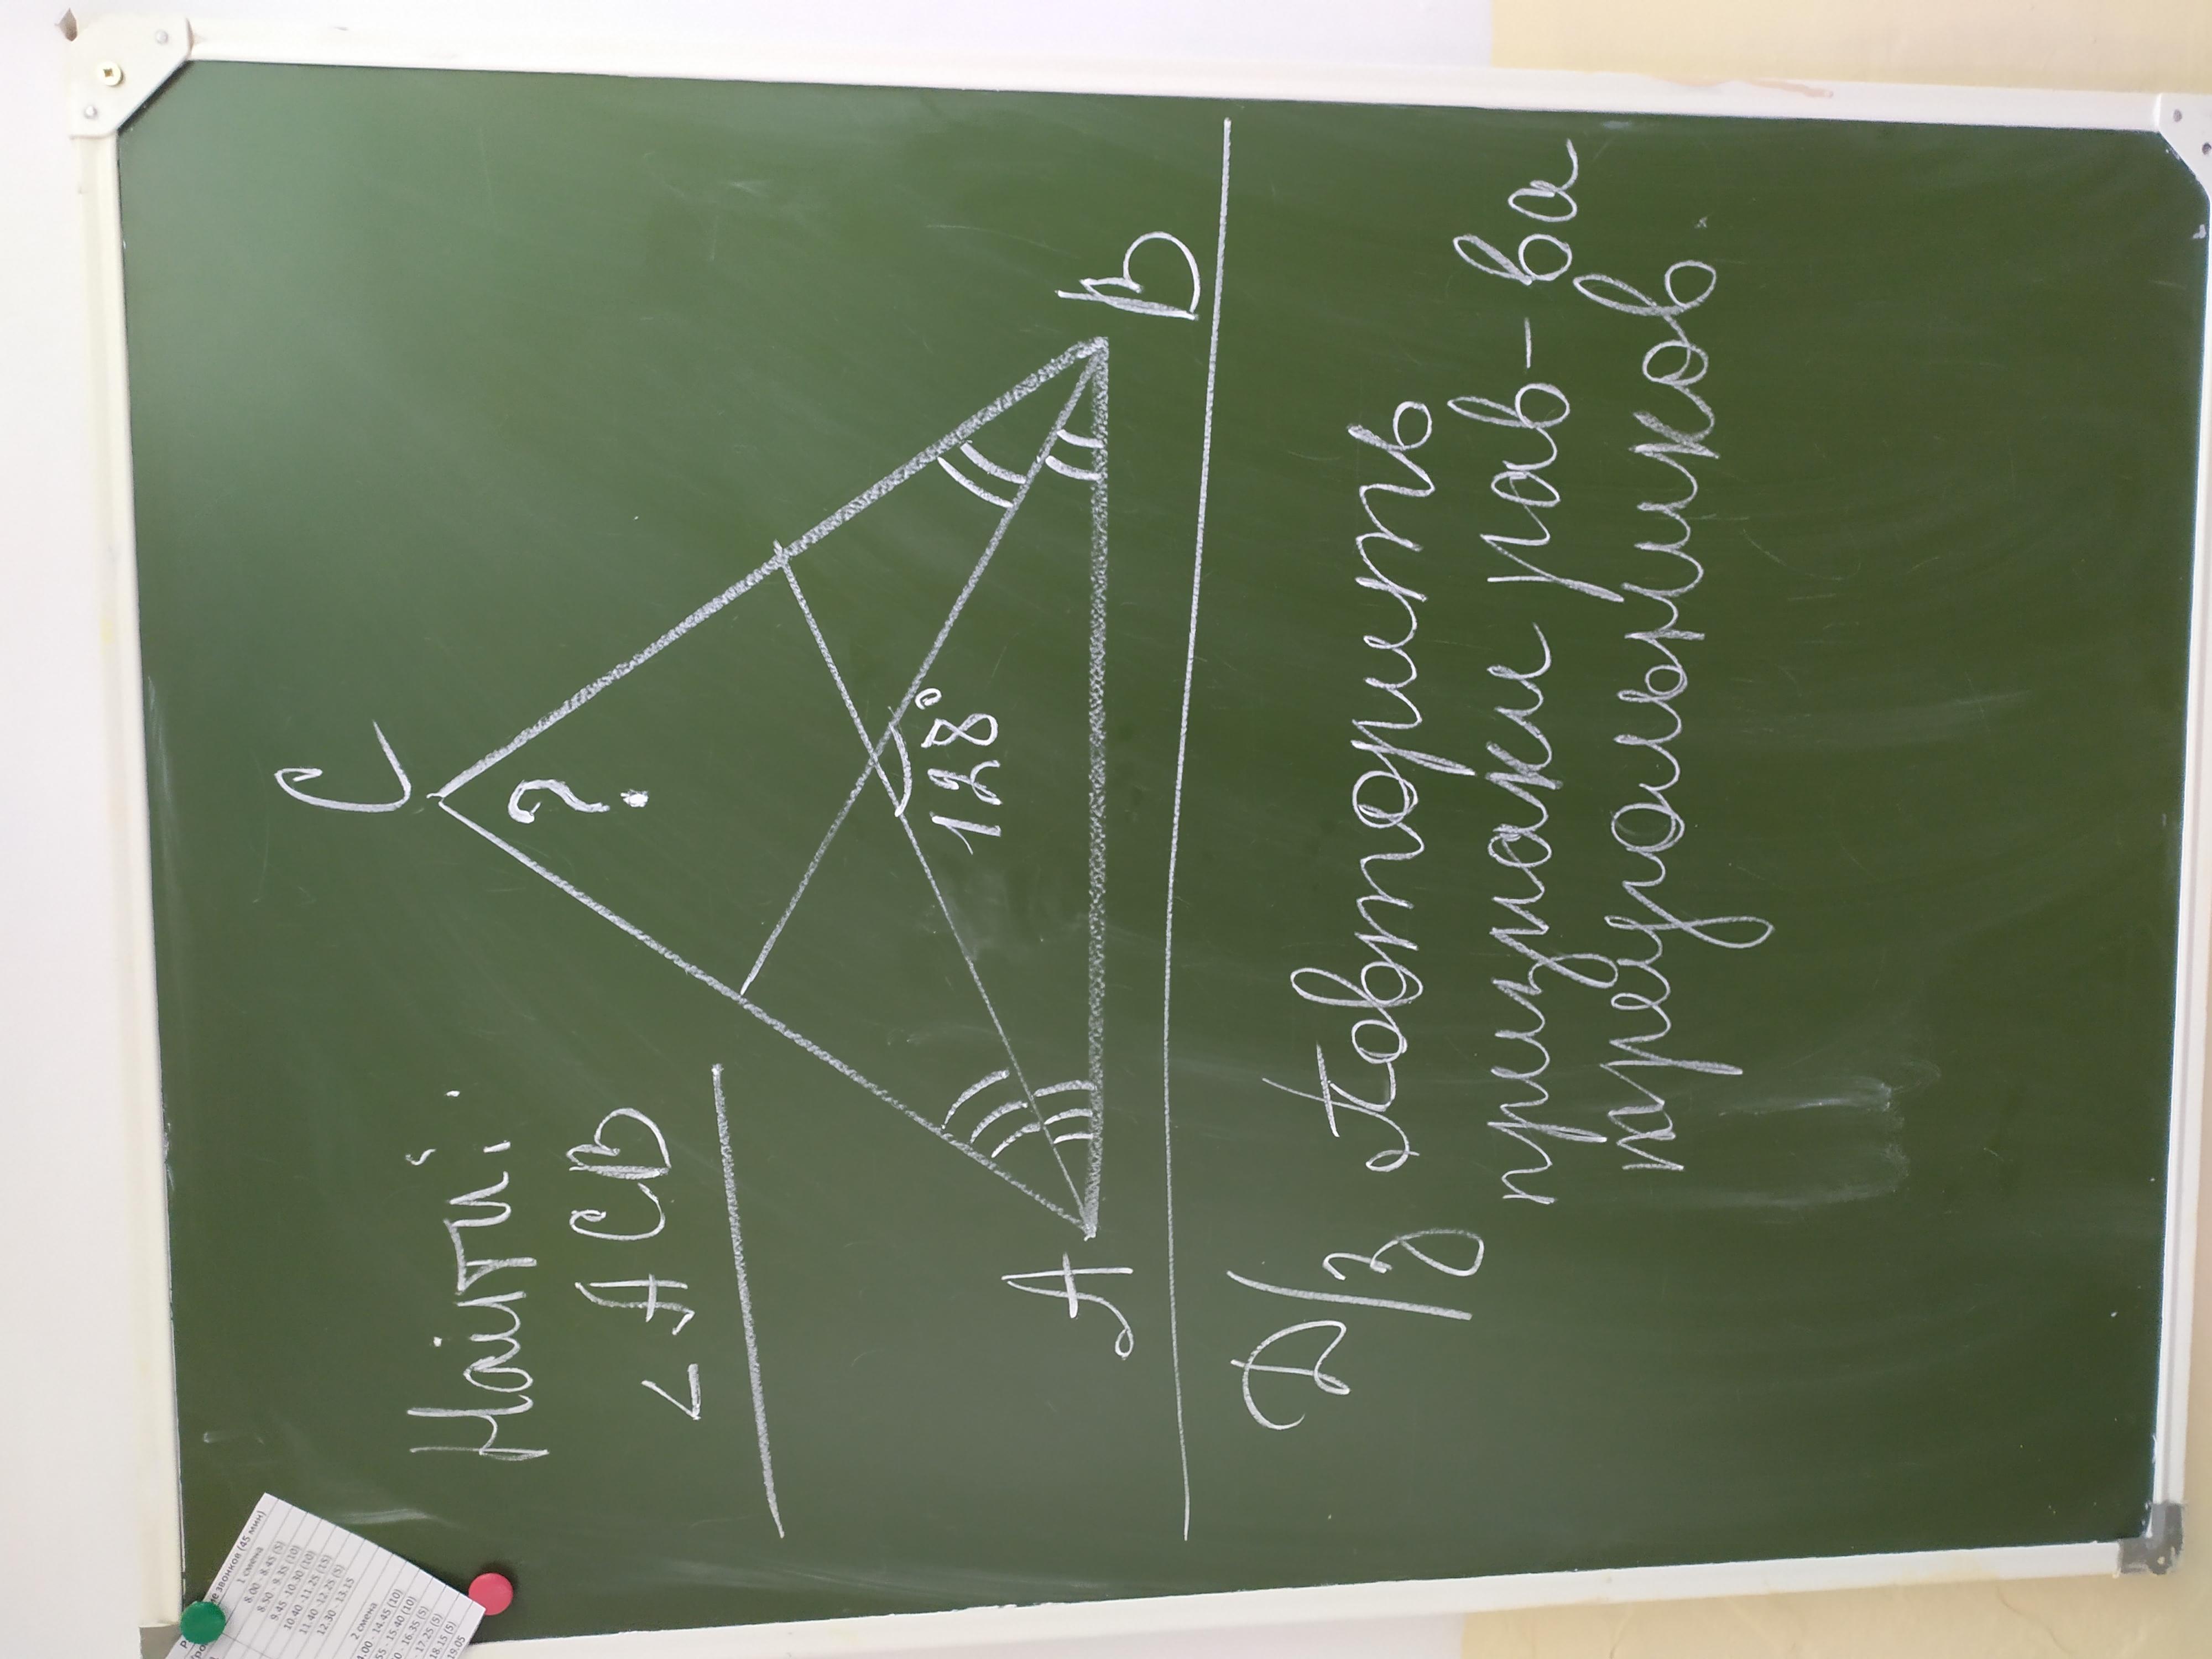 Найти:
∠ACB
C
?
128°
A
B
Д/з Повторить
признаки рав-ва
треугольников.
звонков (45 мин)
1 смена
8.00 - 8.45 (5)
8.50 - 9.35 (10)
9.45 - 10.30 (10)
10.40 - 11.25 (15)
11.40 - 12.25 (5)
12.30 - 13.15
2 смена
14.45 (10)
15.40 (10)
16.35 (5)
17.25 (5)
18.15 (5)
19.05